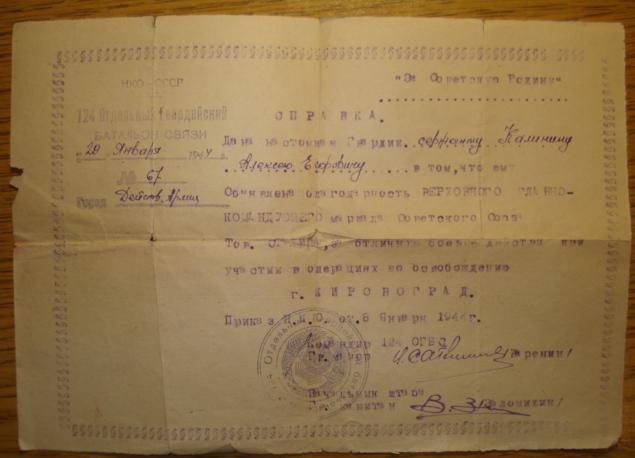 НКО-СССР
124 Отдельный Гвардейский
БАТАЛЬОН СВЯЗИ
"20" Января 1944 г.
№ 67
Город Действ. Армия
"За Советскую Родину"
СПРАВКА.
Дана настоящая Гвардии сержанту Калинину
Алексею Егоровичу в том, что ему
Объявлена благодарность ВЕРХОВНОГО ГЛАВНО-
КОМАНДУЮЩЕГО маршала Советского Союза
Тов. Сталина, за отличные боевые действия при
участии в операциях по освобождению
г. КИРОВОГРАД.
Приказ Н.К.О. от 8 Января 1944г.
Командир 124 ОГБС
Гв. майор Каренин/
Начальник штаба
Гв. капитан